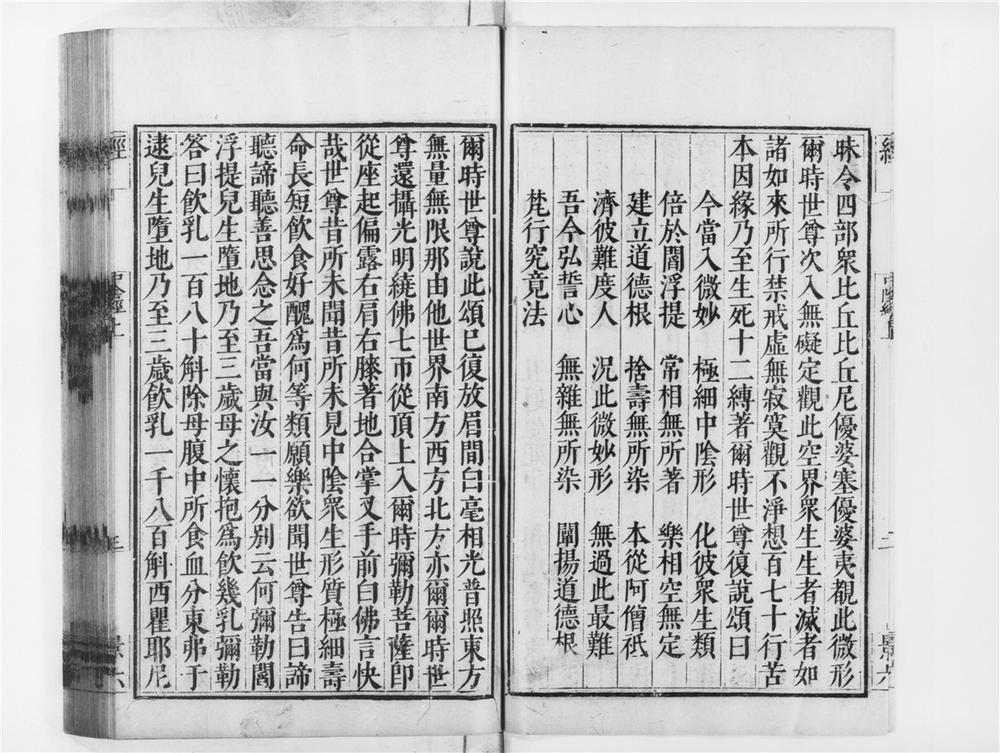 昧令四部衆比丘比丘尼優婆塞優婆夷覩此微形
爾時世尊次入無礙定觀此空界衆生生者滅者如
諸如來所行禁戒虛無寂寞觀不淨想百七十行苦
本因緣乃至生死十二縛著爾時世尊復說頌曰
今當入微妙 極細中陰形 化彼衆生類
倍於閻浮提 常相無所著 樂相空無定
建立道德根 捨壽無所染 本從阿僧祇
濟彼難度人 況此微妙形 無過此最難
吾今弘誓心 無雜無所染 闡揚道德根
梵行究竟法
爾時世尊說此頌已復放眉間白毫相光普照東方
無量無限那由他世界南方西方北方亦爾爾時世
尊還攝光明繞佛七帀從頂上入爾時彌勒菩薩卽
從座起偏露右肩右膝著地合掌叉手前白佛言快
哉世尊昔所未聞昔所未見中陰衆生形質極細壽
命長短飲食好醜爲何等類願樂欲聞世尊告曰諦
聽諦聽善思念之吾當與汝一一分別云何彌勒閻
浮提兒生墮地乃至三歲母之懷抱爲飲幾乳彌勒
答曰飲乳一百八十斛除母腹中所食血分東弗于
逮兒生墮地乃至三歲飲乳一千八百斛西瞿耶尼
經
二
景六
經
三
景六